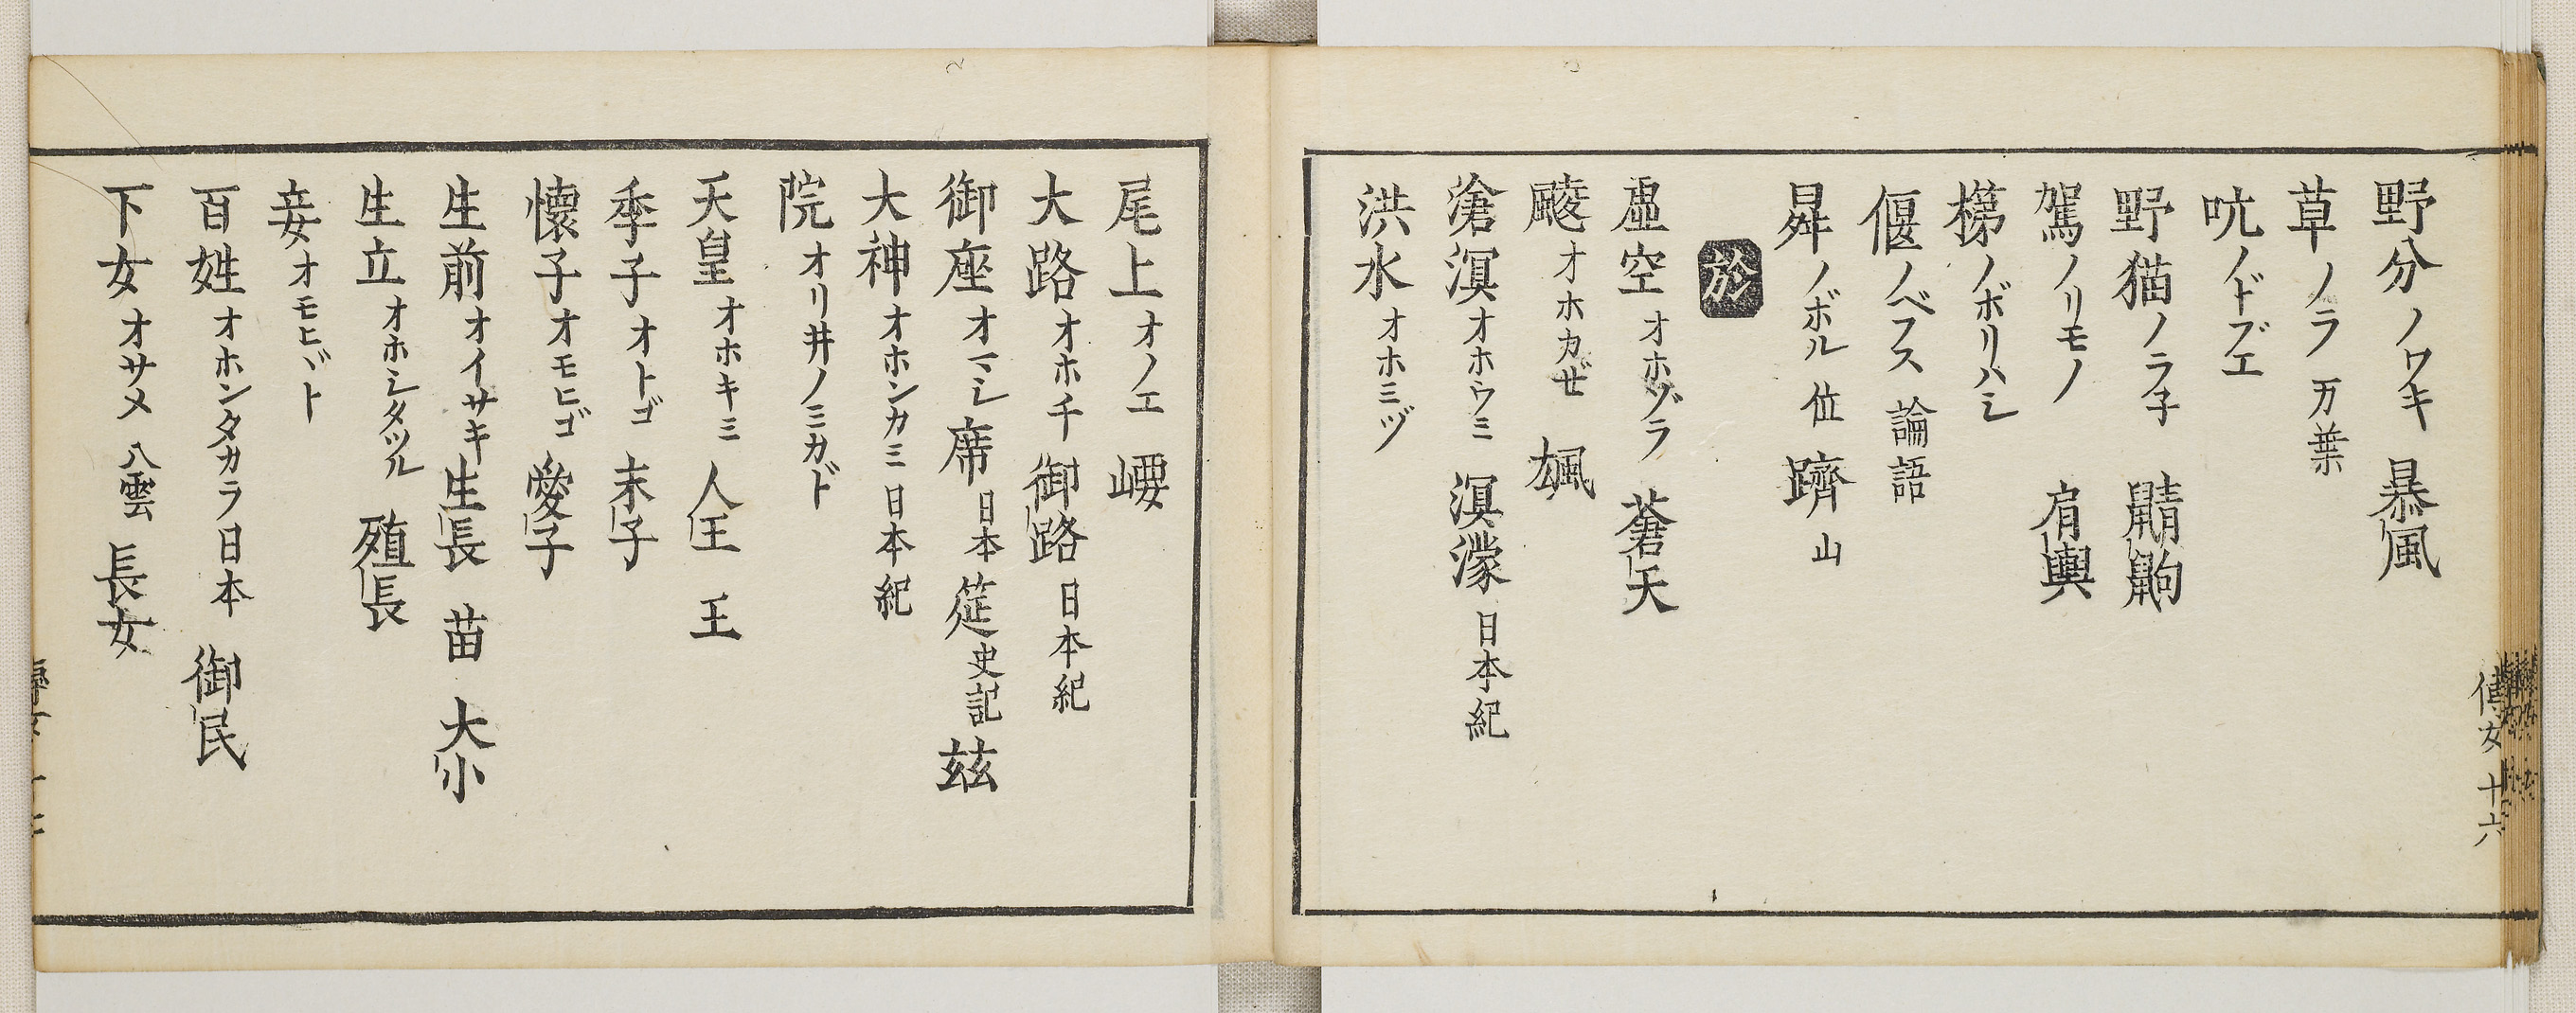 野分ノワキ 暴風
草ノラ 万葉
吭ノドブエ
野猫ノラ子 鼱鼩
駕ノリモノ 肩輿
梯ノボリハシ
偃ノベフス 論語
昇ノボル 位 躋 山
於
虚空オホゾラ 蒼天
飋オホカゼ 颿
滄溟オホウミ 溟濛 日本紀
洪水オホミヅ
傭女 十六
尾上オノエ 㟺
大路オホチ 御路 日本紀
御座オマシ 席 日本 筵 史記 玆
大神オホンカミ 日本紀
院オリ井ノミカド
天皇オホキミ 人王 王
季子オトゴ 末子
懐子オモヒゴ 愛子
生前オイサキ 生長 苗 大小
生立オホシタツル 殖長
妾オモヒビト
百姓オホンタカラ 日本 御民
下女オサメ 八雲 長女